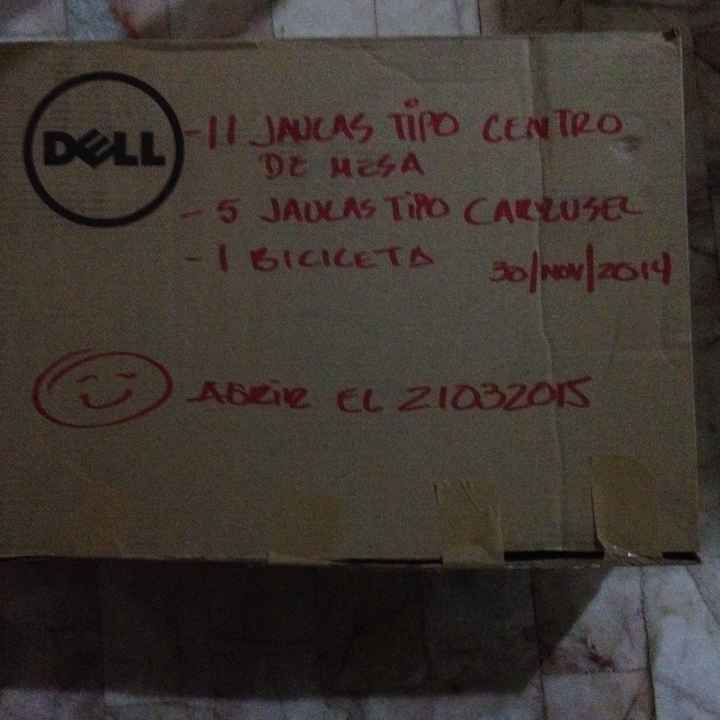 DELL
- 11 JAULAS TIPO CENTRO
DE MESA
- 5 JAULAS TIPO CARRUSEL
- 1 BICICLETA
30/NOV/2014
ABRIR EL 21032015